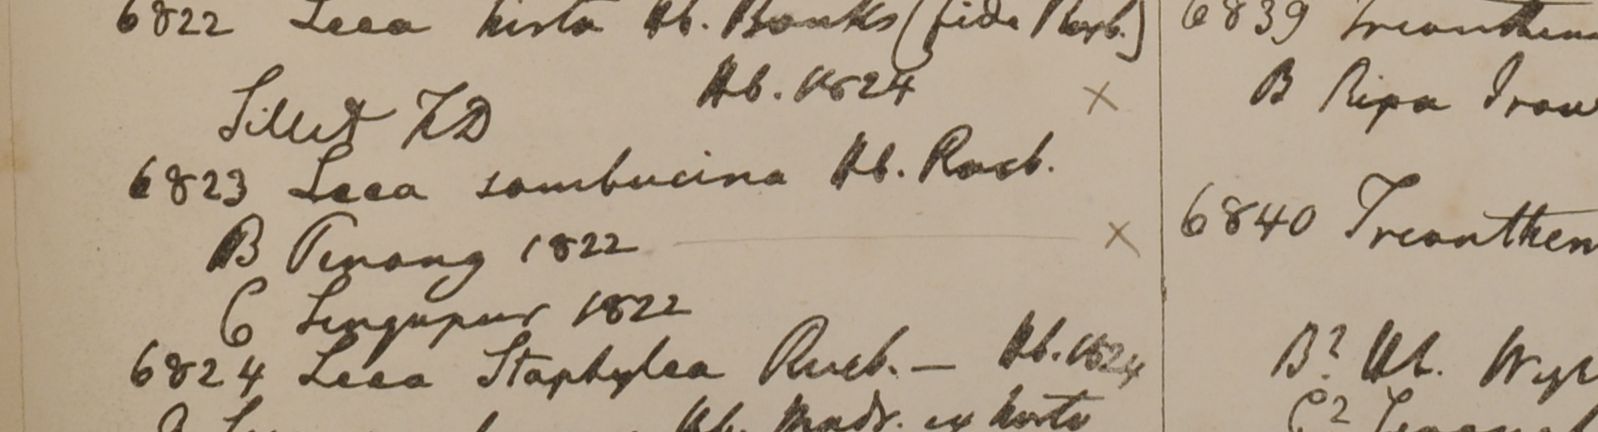 6822 Leea hirta Hb. Banks (fide Roxb.)
Hb. 1824
Sillet FD
6823 Leea sambucina Hb. Roxb.
B Penang 1822
C Singapur 1822
6824 Leea Staphylea Roxb. — Hb. 1824
Hb. Madr. ex horto
6839 Trianthem
B Ripa Iraw
6840 Trianthem
B? Hb. Wigh
C?